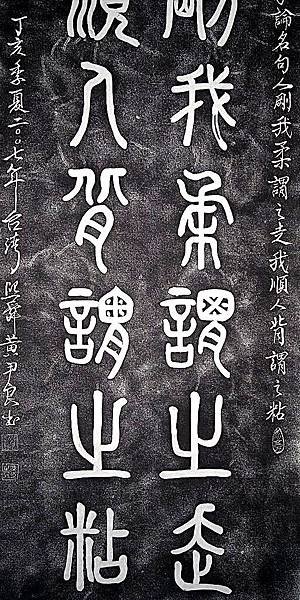 論名句人剛我柔謂之走我順人背謂之粘
剛我柔謂之走
順人背謂之粘
丁亥季夏二〇〇七年台灣
黃尹